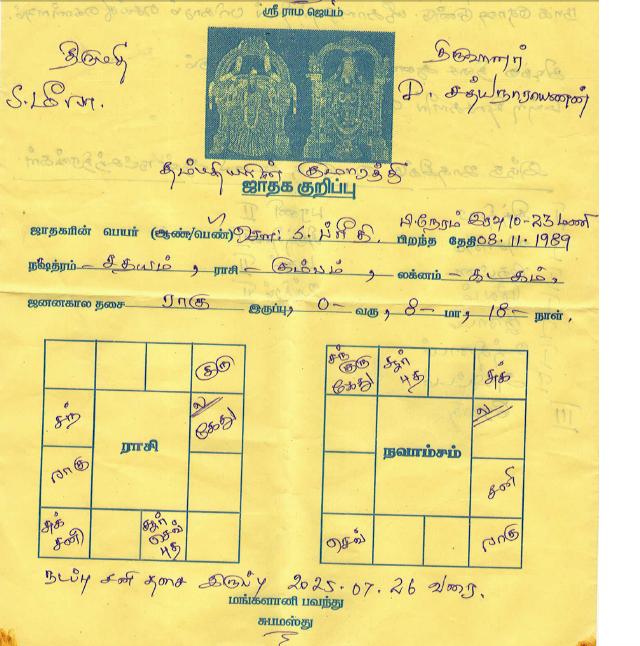 ஸ்ரீ ராம ஜெயம்
திருமதி
S. மீனா.
திருவாளர்
D. சத்யநாராயணன்
தம்பதியரின் குமாரத்தி
ஜாதக குறிப்பு
பி.நேரம் இரவு 10-23 மணி
ஜாதகரின் பெயர் (ஆண்/பெண்) S. ப்ரீதி. பிறந்த தேதி 08.11.1989
நஷத்ரம் - சதயம், ராசி - கும்பம், லக்னம் - கடகம்.
ஜனனகால தசை ராகு இருப்பு, 0 - வரு, 8 - மா, 18 - நாள்.
குரு
சந்
ல
கேது
ராசி
ராகு
சுக்
சனி
சூர்
செவ்
புத
சந்
குரு
கேது
சூர்
புத
சுக்
ல
நவாம்சம்
சனி
செவ்
ராகு
நடப்பு சனி தசை இருப்பு 2025.07.26 வரை.
மங்களானி பவந்து
சுபமஸ்து